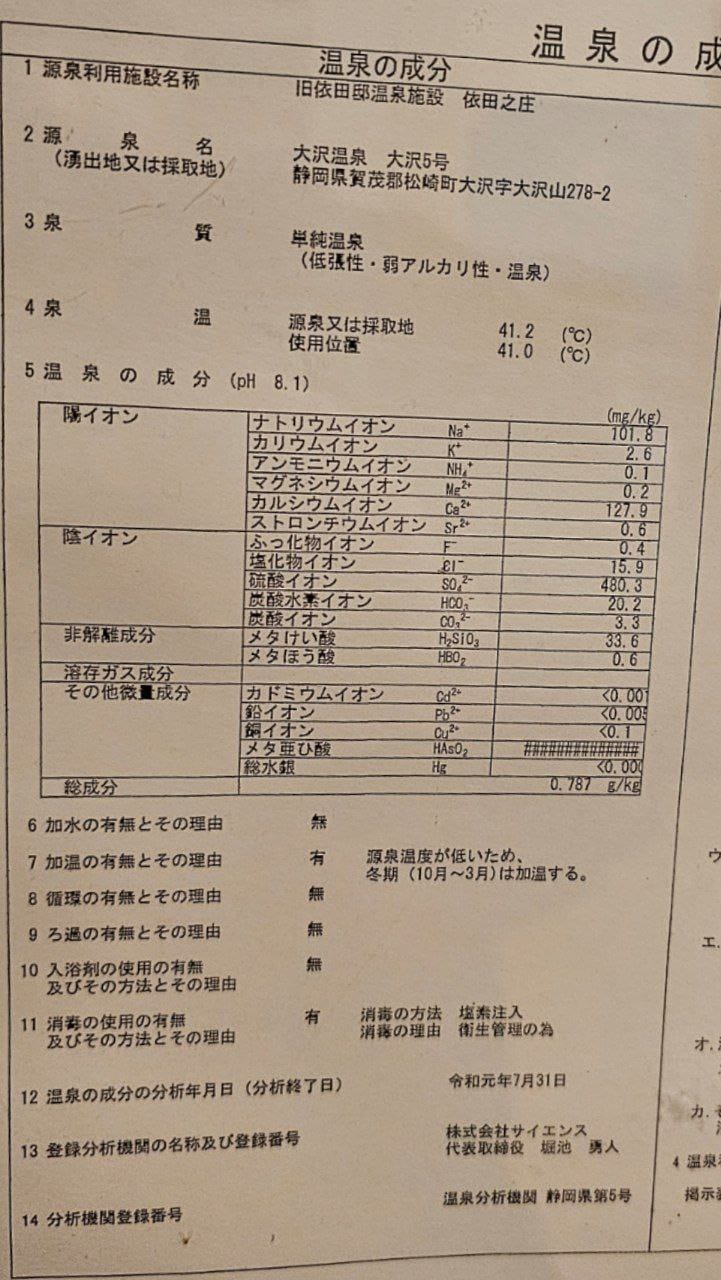 温泉の成
温泉の成分
1 源泉利用施設名称 旧依田邸温泉施設 依田之庄
2 源泉名 大沢温泉 大沢5号
(湧出地又は採取地) 静岡県賀茂郡松崎町大沢字大沢山278-2
3 泉質 単純温泉
(低張性・弱アルカリ性・温泉)
4 泉温 源泉又は採取地 41.2 (℃)
使用位置 41.0 (℃)
5 温泉の成分 (pH 8.1)
(mg/kg)
陽イオン ナトリウムイオン Na⁺ 101.8
カリウムイオン K⁺ 2.6
アンモニウムイオン NH₄⁺ 0.1
マグネシウムイオン Mg²⁺ 0.2
カルシウムイオン Ca²⁺ 127.9
ストロンチウムイオン Sr²⁺ 0.6
陰イオン ふっ化物イオン F⁻ 0.4
塩化物イオン Cl⁻ 15.9
硫酸イオン SO₄²⁻ 480.3
炭酸水素イオン HCO₃⁻ 20.2
炭酸イオン CO₃²⁻ 3.3
非解離成分 メタけい酸 H₂SiO₃ 33.6
メタほう酸 HBO₂ 0.6
溶存ガス成分
その他微量成分 カドミウムイオン Cd²⁺ <0.001
鉛イオン Pb²⁺ <0.005
銅イオン Cu²⁺ <0.1
メタ亜ひ酸 HAsO₂ ##############
総水銀 Hg <0.000
総成分 0.787 g/kg
6 加水の有無とその理由 無
7 加温の有無とその理由 有 源泉温度が低いため、
冬期 (10月～3月)は加温する。
8 循環の有無とその理由 無
9 ろ過の有無とその理由 無
10 入浴剤の使用の有無 無
及びその方法とその理由
11 消毒の使用の有無 有 消毒の方法 塩素注入
及びその方法とその理由 消毒の理由 衛生管理の為
12 温泉の成分の分析年月日 (分析終了日) 令和元年7月31日
13 登録分析機関の名称及び登録番号 株式会社サイエンス
代表取締役 堀池 勇人
14 分析機関登録番号 温泉分析機関 静岡県第5号
ウ
エ.
オ.
カ.
4 温泉
掲示